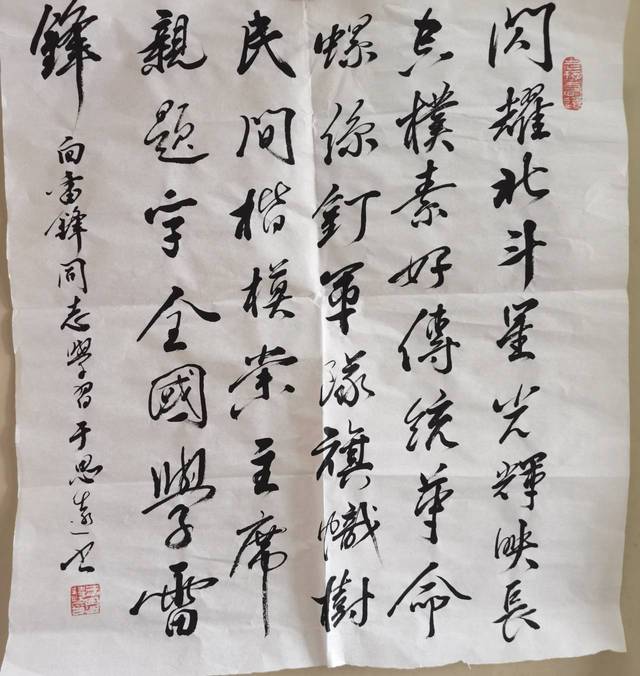 閃耀北斗星光輝映長
空樸素好傳統革命
螺絲釘軍隊旗幟樹
民間楷模榮主席
親題字全國學雷
鋒
向雷鋒同志學習于思遠書